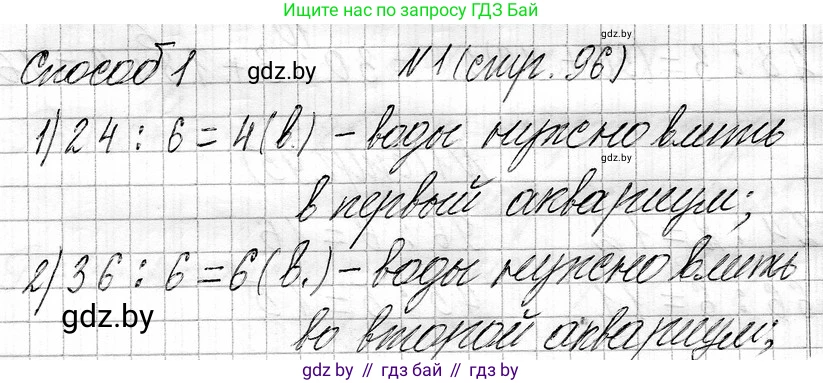 Ищите нас по запросу ГДЗ Бай
gdz.by
Способ 1 gdz.by N 1 (стр. 96)
1) 24 : 6 = 4 (в.) – воды нужно влить
gdz.by
в первый аквариум;
2) 36 : 6 = 6 (в.) – воды нужно влить
gdz.by
во второй аквариум;
gdz.by // гдз бай // gdz.by